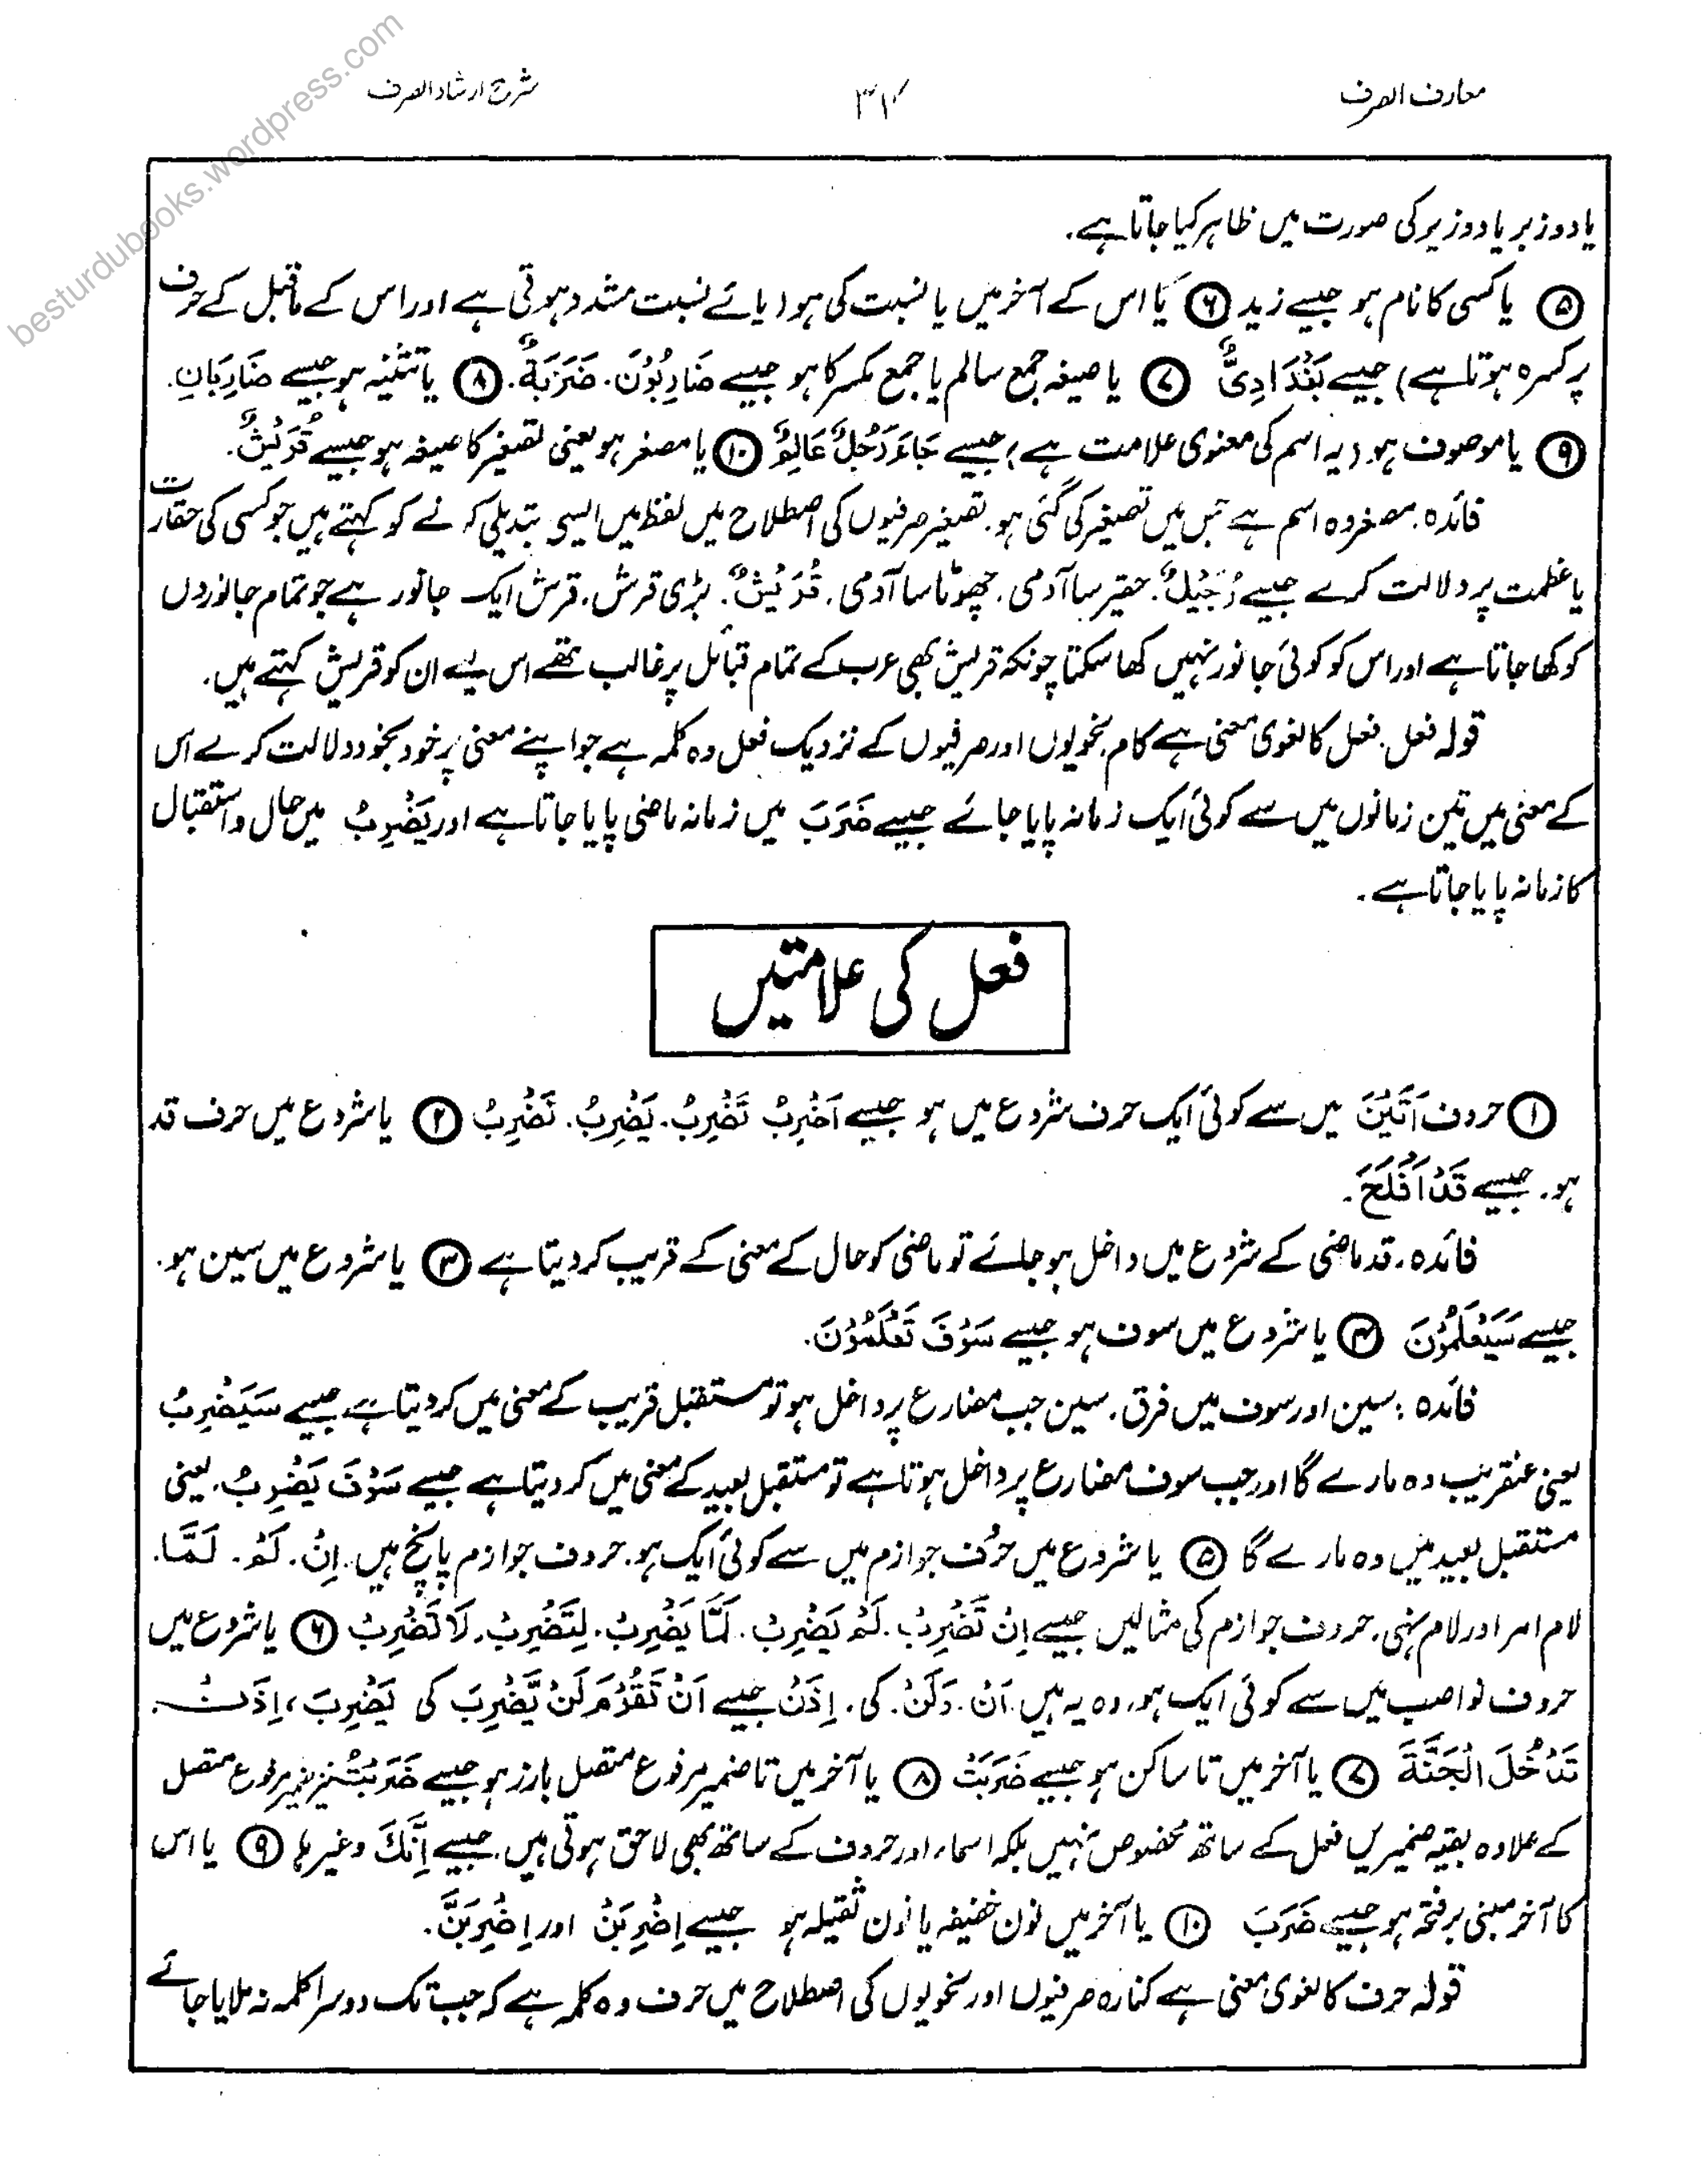 معارف الصرف
۳۷
شرح ارشاد الصرف
besturdubooks.wordpress.com
یا دو زبر یا دو زیر کی صورت میں ظاہر کیا جاتا ہے۔
⑤ یا کسی کا نام ہو جیسے زید ⑥ یَا اس کے آخر میں یا نسبت کی ہو (یائے نسبت مشدد ہوتی ہے اور اس کے ماقبل کے حرف
پر کسرہ ہوتا ہے) جیسے بَغْدَادِیٌّ ⑦ یا صیغہ جمع سالم یا جمع مکسر کا ہو جیسے ضَارِبُوْنَ۔ ضَرَبَةٌ۔ ⑧ یا تثنیہ ہو جیسے ضَارِبَانِ۔
⑨ یا موصوف ہو (یہ اسم کی معنوی علامت ہے) جیسے جَاءَ رَجُلٌ عَالِمٌ ⑩ یا مصغر ہو یعنی تصغیر کا صیغہ ہو جیسے قُرَیْشٌ۔
فائدہ۔ مصغر وہ اسم ہے جس میں تصغیر کی گئی ہو۔ تصغیر صرفیوں کی اصطلاح میں لفظ میں ایسی تبدیلی کرنے کو کہتے ہیں جو کسی کی حقارت
یا عظمت پر دلالت کرے جیسے رُجَیْلٌ۔ حقیر سا آدمی، چھوٹا سا آدمی۔ قُرَیْشٌ۔ بڑی قرش، قرش ایک جانور ہے جو تمام جانوروں
کو کھا جاتا ہے اور اس کو کوئی جانور نہیں کھا سکتا چونکہ قریش بھی عرب کے تمام قبائل پر غالب تھے اس لیے ان کو قریش کہتے ہیں۔
قولہ فعل۔ فعل کا لغوی معنی ہے کام۔ نحویوں اور صرفیوں کے نزدیک فعل وہ کلمہ ہے جو اپنے معنی پر خود بخود دلالت کرے اس
کے معنی میں تین زمانوں میں سے کوئی ایک زمانہ پایا جائے جیسے ضَرَبَ میں زمانہ ماضی پایا جاتا ہے اور یَضْرِبُ میں حال و استقبال
کا زمانہ پایا جاتا ہے۔
فعل کی علامتیں
① حروف اَتَیْنَ میں سے کوئی ایک حرف شروع میں ہو جیسے اَضْرِبُ تَضْرِبُ۔ یَضْرِبُ۔ نَضْرِبُ ② یا شروع میں حرف قد
ہو۔ جیسے قَدْ اَفْلَحَ۔
فائدہ۔ قد ماضی کے شروع میں داخل ہو جائے تو ماضی کو حال کے معنی کے قریب کر دیتا ہے ③ یا شروع میں سین ہو۔
جیسے سَیَعْلَمُوْنَ ④ یا شروع میں سوف ہو جیسے سَوْفَ تَعْلَمُوْنَ۔
فائدہ : سین اور سوف میں فرق۔ سین جب مضارع پر داخل ہو تو مستقبل قریب کے معنی میں کر دیتا ہے جیسے سَیَضْرِبُ
یعنی عنقریب وہ مارے گا اور جب سوف مضارع پر داخل ہوتا ہے تو مستقبل بعید کے معنی میں کر دیتا ہے جیسے سَوْفَ یَضْرِبُ۔ یعنی
مستقبل بعید میں وہ مارے گا ⑤ یا شروع میں حرف جوازم میں سے کوئی ایک ہو۔ حروف جوازم پانچ ہیں۔ اِنْ۔ لَمْ۔ لَمَّا۔
لام امر اور لام نہی۔ حروف جوازم کی مثالیں جیسے اِنْ تَضْرِبْ۔ لَمْ یَضْرِبْ۔ لَمَّا یَضْرِبْ۔ لِتَضْرِبْ۔ لَا تَضْرِبْ ⑥ یا شروع میں
حروف نواصب میں سے کوئی ایک ہو۔ وہ یہ ہیں۔ اَنْ۔ وَلَنْ۔ کی۔ اِذَنْ جیسے اَنْ تَقُوْمَ لَنْ یَّضْرِبَ کی یَضْرِبَ، اِذَنْ۔
تَدْخُلَ الْجَنَّةَ ⑦ یا آخر میں تا ساکن ہو جیسے ضَرَبَتْ ⑧ یا آخر میں تا ضمیر مرفوع متصل بارز ہو جیسے ضَرَبْتُ نیز ضمیر مرفوع متصل
کے علاوہ بقیہ ضمیریں فعل کے ساتھ مخصوص نہیں بلکہ اسماء اور حروف کے ساتھ بھی لاحق ہوتی ہیں۔ جیسے اِنَّكَ وغیرہا ⑨ یا اس
کا آخر مبنی بر فتحہ ہو جیسے ضَرَبَ ⑩ یا آخر میں نون خفیفہ یا نون ثقیلہ ہو جیسے اِضْرِبَنْ اور اِضْرِبَنَّ۔
قولہ حرف کا لغوی معنی ہے کنارہ صرفیوں اور نحویوں کی اصطلاح میں حرف وہ کلمہ ہے کہ جب تک دوسرا کلمہ نہ ملایا جائے